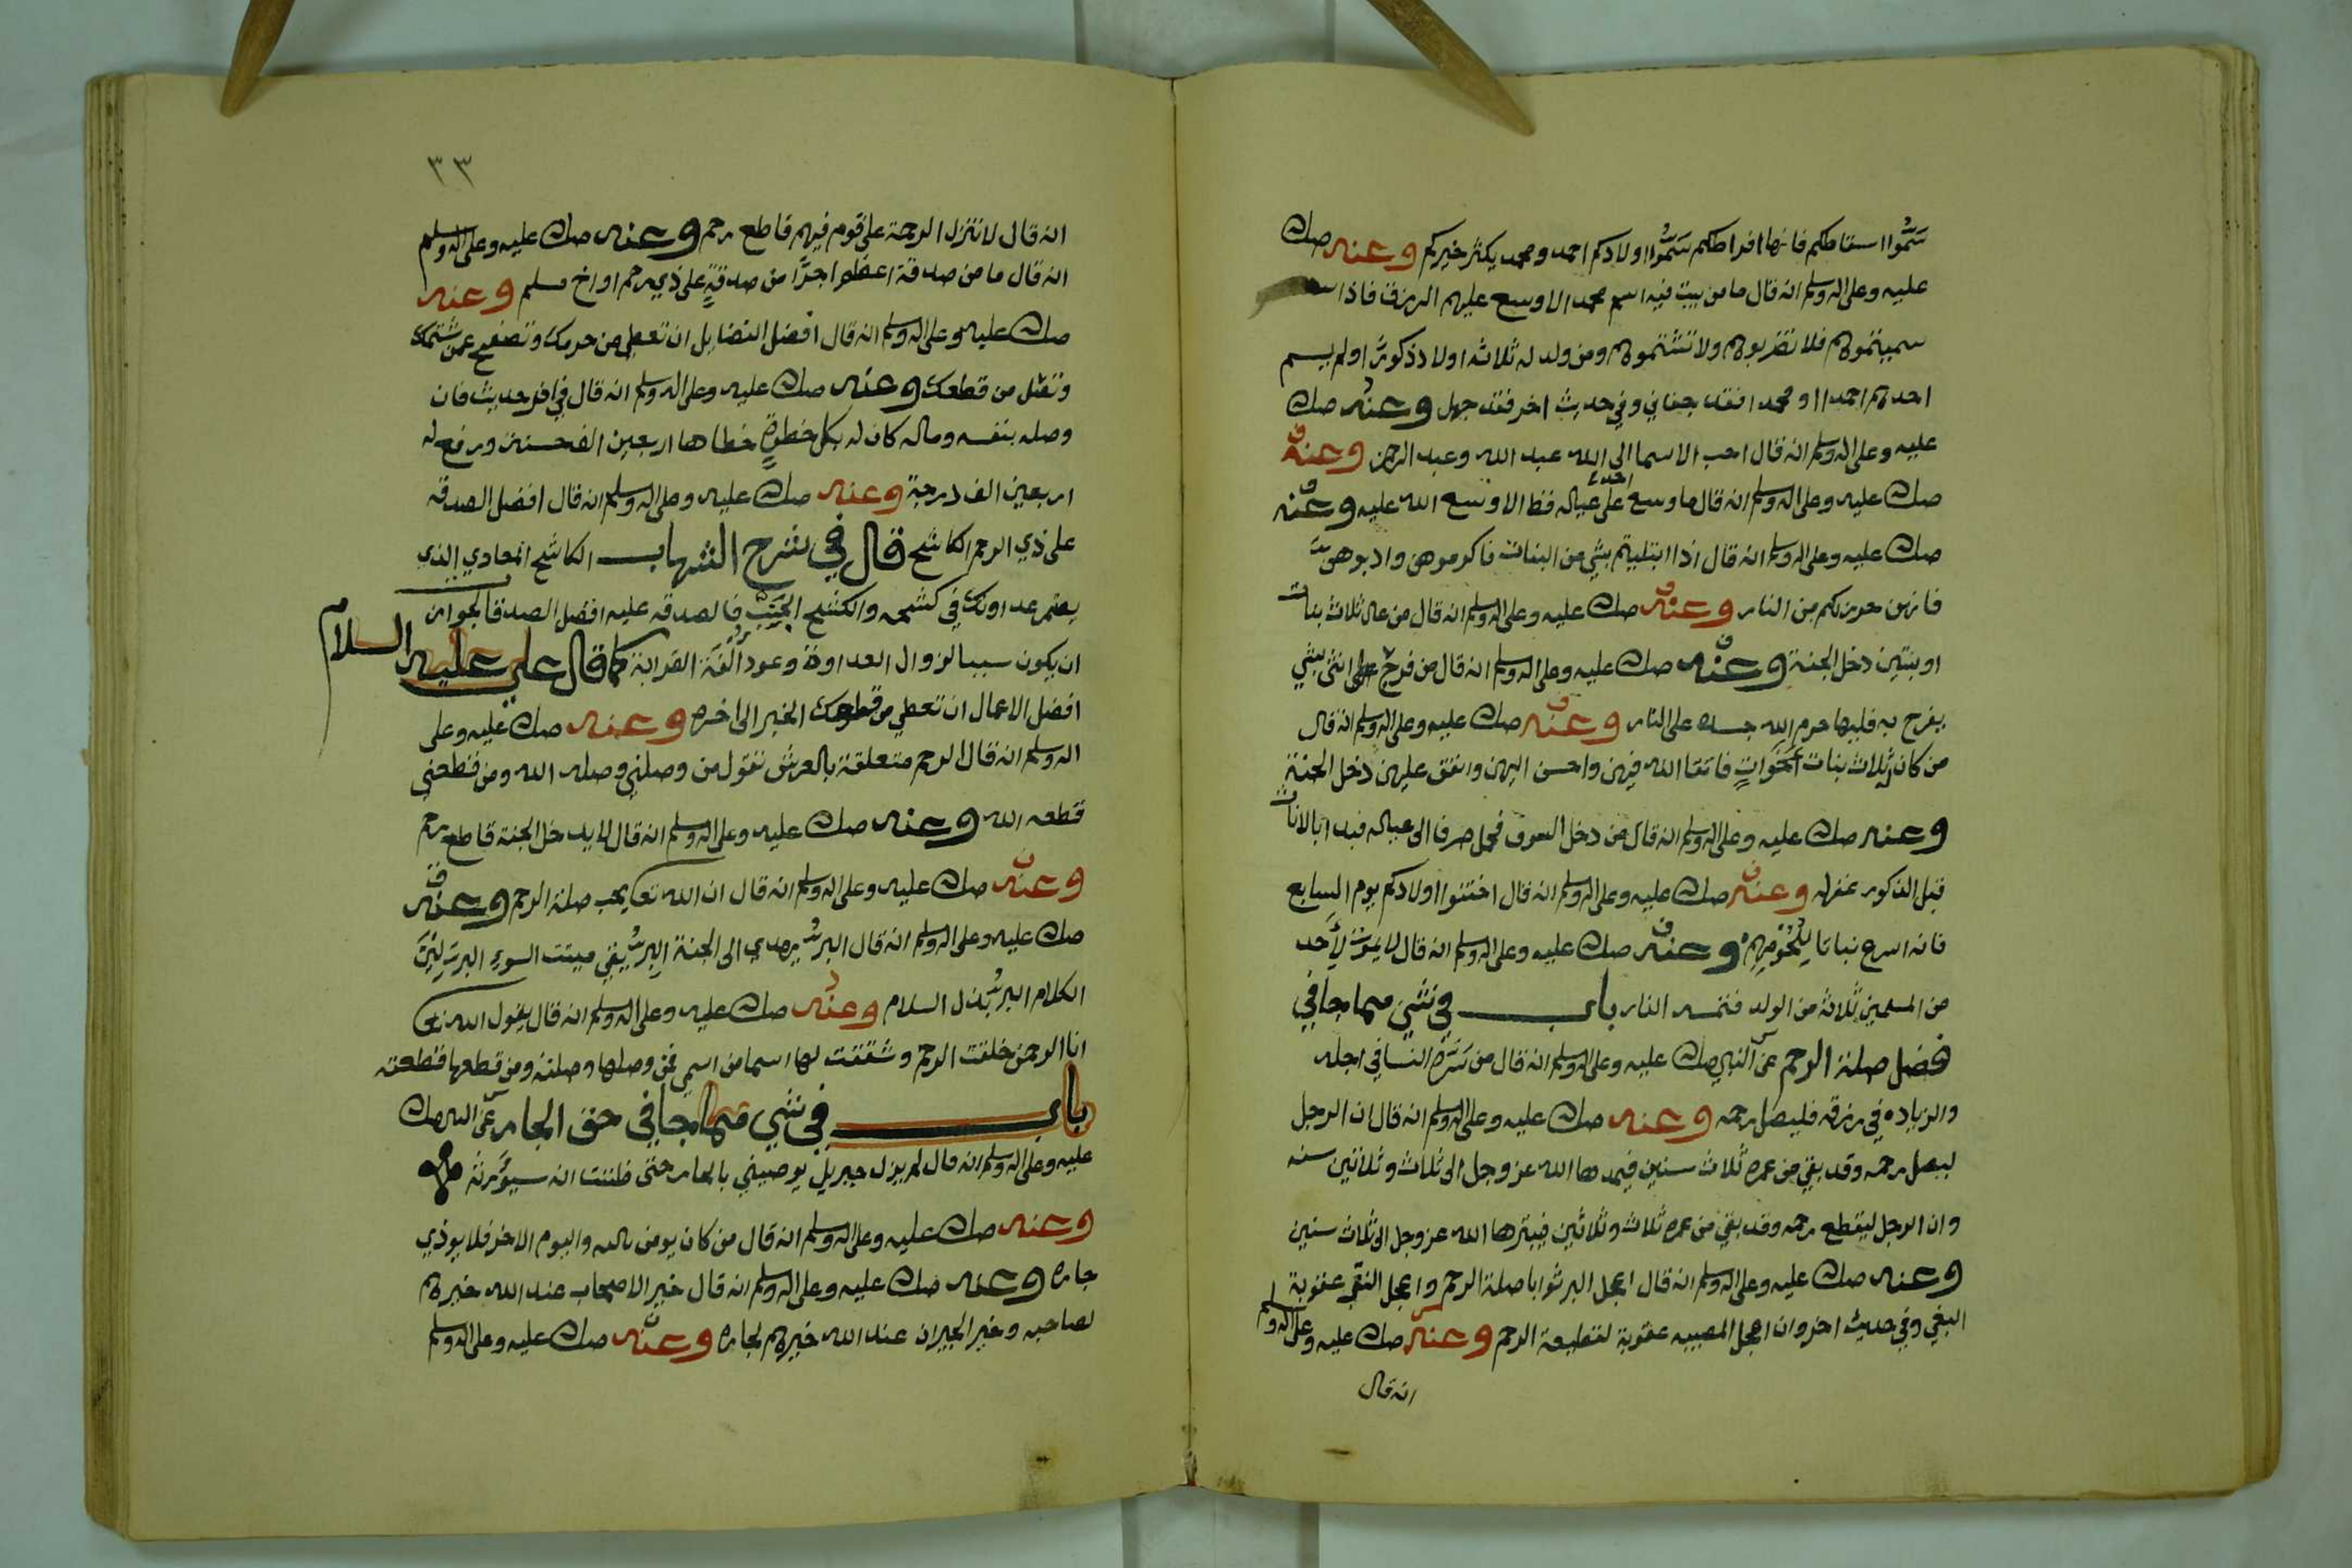 سَمُّوا اسقاطكم فانها افراطكم سَمُّوا اولادكم احمد ومحمد يكثر خيركم وعنه صلى
عليه وعلى اله وسلم انه قال ما من بيت فيه اسم محمد الا وسع عليهم الرزق فاذا
سميتموهم فلا تضربوهم ولا تشتموهم ومن ولد له ثلاثه اولاد ذكورًا ولم يسم
احدهم احمدا او محمدا فقد جفاني وفي حديث اخر فقد جهل وعنه صلى
عليه وعلى اله وسلم انه قال احب الاسما الى الله عبد الله وعبد الرحمن وعنه
صلى عليه وعلى اله وسلم انه قال ما وسع احد على عياله قط الا وسع الله عليه وعنه
صلى عليه وعلى اله وسلم انه قال اذا ابتليتم بشي من البنات فاكرموهن وادبوهن
فانهن حرزلكم من النار وعنه صلى عليه وعلى اله وسلم انه قال من عال ثلاث بنات
او بنتين دخل الجنة وعنه صلى عليه وعلى اله وسلم انه قال من فرح انثى بشي
يفرح به قلبها حرم الله جسده على النار وعنه صلى عليه وعلى اله وسلم انه قال
من كان له ثلاث بنات اخواتٍ فاتقا الله فيهن واحسن اليهن وانفق عليهن دخل الجنة
وعنه صلى عليه وعلى اله وسلم انه قال من دخل السوق فحمل صرفا الى عياله فبدا بالاناث
قبل الذكور غفر له وعنه صلى عليه وعلى اله وسلم انه قال اختنوا اولادكم يوم السابع
فانه اسرع نباتا للحومهم وعنه صلى عليه وعلى اله وسلم انه قال لا يموت لأحد
من المسلمين ثلاثه من الولد فتمسه النار باب في شي مما جا في
فضل صلة الرحم عن النبي صلى عليه وعلى اله وسلم انه قال من سَرَّهُ النسا في اجله
والزياده في رزقه فليصل رحمه وعنه صلى عليه وعلى اله وسلم انه قال ان الرجل
ليصل رحمه وقد بقي من عمره ثلاث سنين فيمدها الله عز وجل الى ثلاث وثلاثين سنه
وان الرجل ليقطع رحمه وقد بقي من عمره ثلاث وثلاثين فيبترها الله عز وجل الى ثلاث سنين
وعنه صلى عليه وعلى اله وسلم انه قال اعجل البر ثوابا صلة الرحم واعجل عقوبة
البغي وفي حديث اخر وان اعجل المعصيه عقوبة لقطيعة الرحم وعنه صلى عليه وعلى اله وسلم
انه قال
٣٣
انه قال لا تنزل الرحمة على قوم فيهم قاطع رحم وعنه صلى عليه وعلى اله وسلم
انه قال ما من صدقة اعظم اجرًا من صدقةٍ على ذي رحم او اخ مسلم وعنه
صلى عليه وعلى اله وسلم انه قال افضل الفضايل ان تعطي من حرمك وتصفح عمن شتمك
وتصل من قطعك وعنه صلى عليه وعلى اله وسلم انه قال في اخر حديث فان
وصله بنفسه وماله كان له بكل خطوةٍ خطاها اربعين الف حسنة ورفع له
اربعين الف درجة وعنه صلى عليه وعلى اله وسلم انه قال افضل الصدقه
على ذي الرحم الكاشح قال في شرح الشهاب الكاشح المعادي الذي
يضمر عداوتك في كشحه والكشح الجَنْبُ فالصدقه عليه افضل الصدقه لجواز
ان يكون سببا لزوال العداوة وعود ألفة القرابة كما قال علي عليه السلام
افضل الاعمال ان تعطي من قطعك الخبر الى اخره وعنه صلى عليه وعلى
اله وسلم انه قال الرحم متعلقة بالعرش تقول من وصلني وصله الله ومن قطعني
قطعه الله وعنه صلى عليه وعلى اله وسلم انه قال لا يدخل الجنة قاطع رحم
وعنه صلى عليه وعلى اله وسلم انه قال ان الله تعا يحب صلة الرحم وعنه
صلى عليه وعلى اله وسلم انه قال البر يهدي الى الجنة البر يقي ميتت السوء البر لين
الكلام البر بذل السلام وعنه صلى عليه وعلى اله وسلم انه قال يقول الله تعا
انا الرحمن خلقت الرحم وشققت لها اسما من اسمي فمن وصلها وصلته ومن قطعها قطعته
باب في شي مما جا في حق الجار عن النبي صلى
عليه وعلى اله وسلم انه قال لم يزل جبريل يوصيني بالجار حتى ظننت انه سيورثه
وعنه صلى عليه وعلى اله وسلم انه قال من كان يومن بالله واليوم الاخر فلا يوذي
جاره وعنه صلى عليه وعلى اله وسلم انه قال خير الاصحاب عند الله خيرهم
لصاحبه وخير الجيران عند الله خيرهم لجاره وعنه صلى عليه وعلى اله وسلم